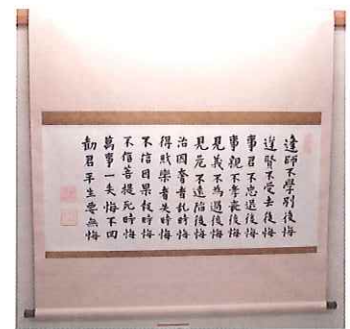 逢師不學別後悔
賢不交去後悔
事君不忠退後悔
事親不孝喪後悔
見義不為過後悔
見危不遠陷後悔
治國奢者亂時悔
得財樂者失時悔
不信因果報時悔
不信菩提死時悔
萬事一失悔不回
勸君平生要無悔